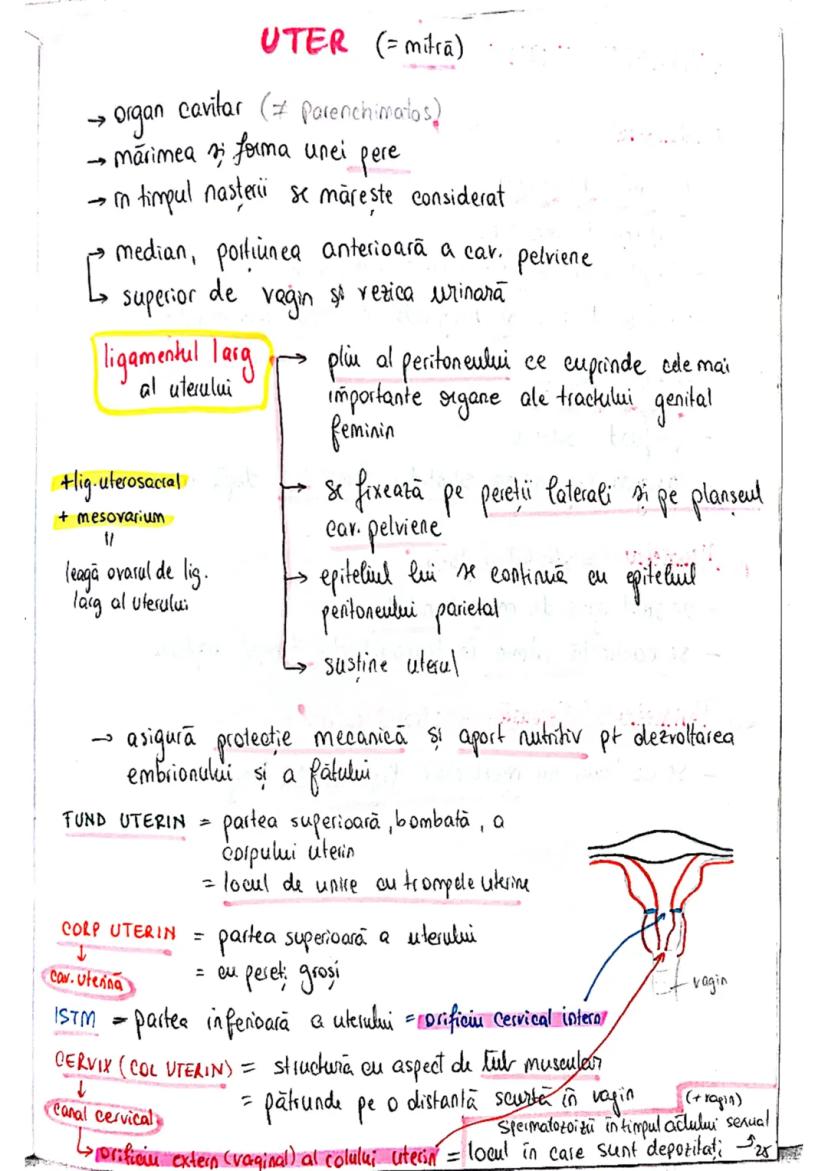 UTER (= mitră)
→ organ cavitar (≠ parenchimatos)
→ mărimea și forma unei pere
→ în timpul nașterii se mărește considerat
→ median, porțiunea anterioară a cav. pelviene
→ superior de vagin și vezica urinară
ligamentul larg
al uterului
→ pliu al peritoneului ce cuprinde cele mai
importante organe ale tractului genital
feminin
+ lig. uterosacral
+ mesovarium
leagă ovarul de lig.
larg al uterului
→ se fixează pe pereții laterali și pe planșeul
cav. pelviene
→ epiteliul lui se continuă cu epiteliul
peritoneului parietal
→ susține uterul
→ asigură protecție mecanică și aport nutritiv pt dezvoltarea
embrionului și a fătului
FUND UTERIN = partea superioară, bombată, a
corpului uterin
= locul de unire cu trompele uterine
CORP UTERIN = partea superioară a uterului
↓
cav. uterină
= cu pereți groși
vagin
ISTM = partea inferioară a uterului = orificiu cervical intern
CERVIX (COL UTERIN) = structură cu aspect de tub muscular
↓
canal cervical
= pătrunde pe o distanță scurtă în vagin
(+ vagin)
spermatozoizii în timpul actului sexual
→ orificiu extern (vaginal) al colului uterin = locul în care sunt depozitați
28